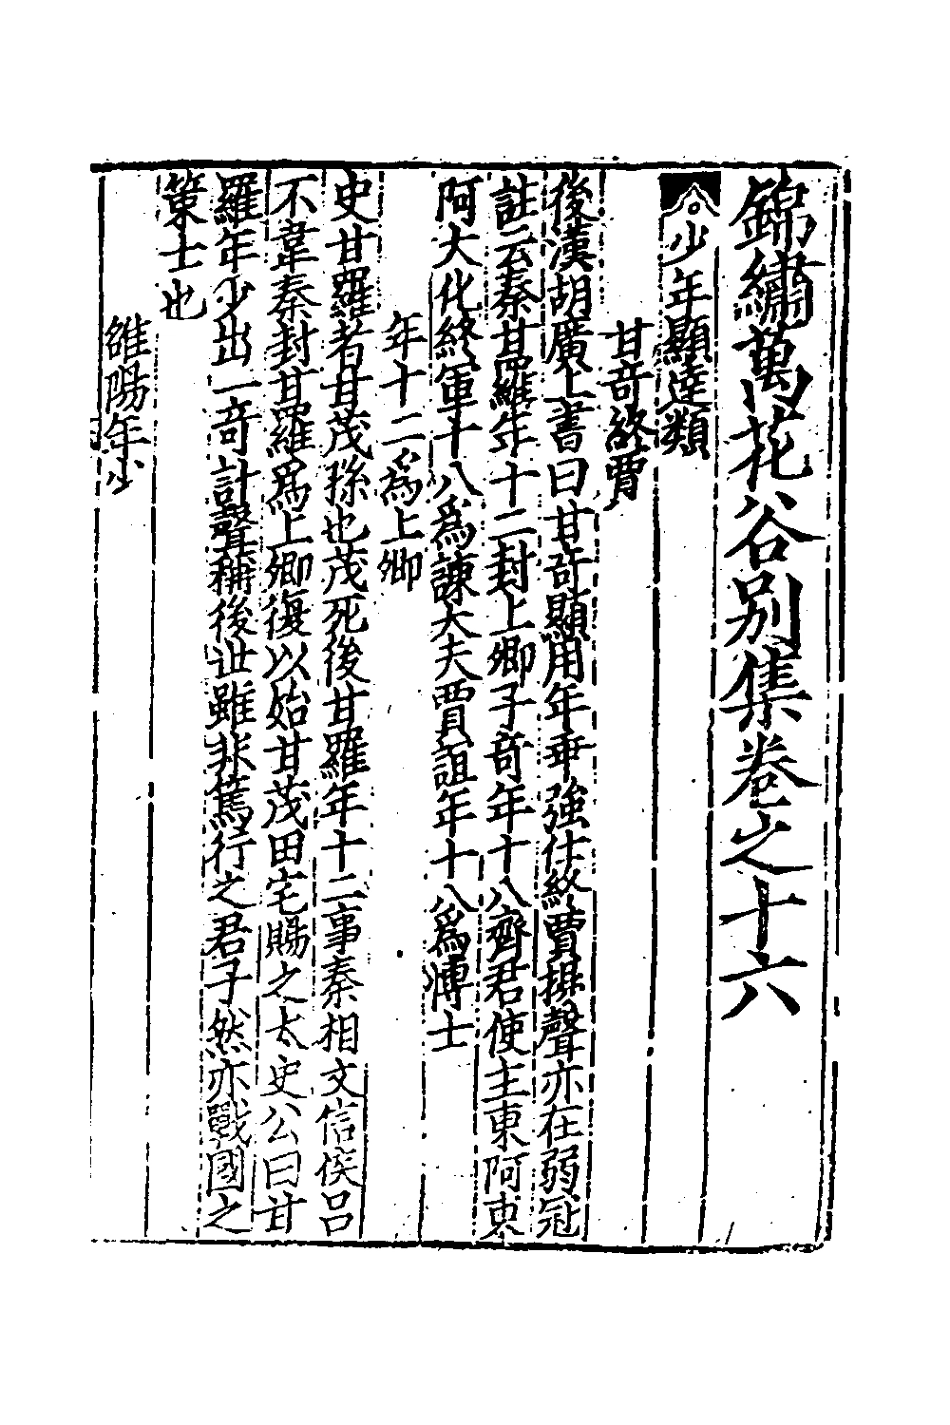 錦繡萬花谷別集卷之十六
少年顯達類
甘奇終賈
後漢胡廣上書曰甘奇顯用年乖強仕終賈揚聲亦在弱冠
註云秦甘羅年十二封上卿子奇年十八齊君使主東阿東
阿大化終軍十八為諫大夫賈誼年十八為博士
年十二為上卿
史甘羅者甘茂孫也茂死後甘羅年十二事秦相文信侯呂
不韋秦封甘羅為上卿復以始甘茂田宅賜之太史公曰甘
羅年少出一奇計聲稱後世雖非篤行之君子然亦戰國之
策士也
雒陽年少